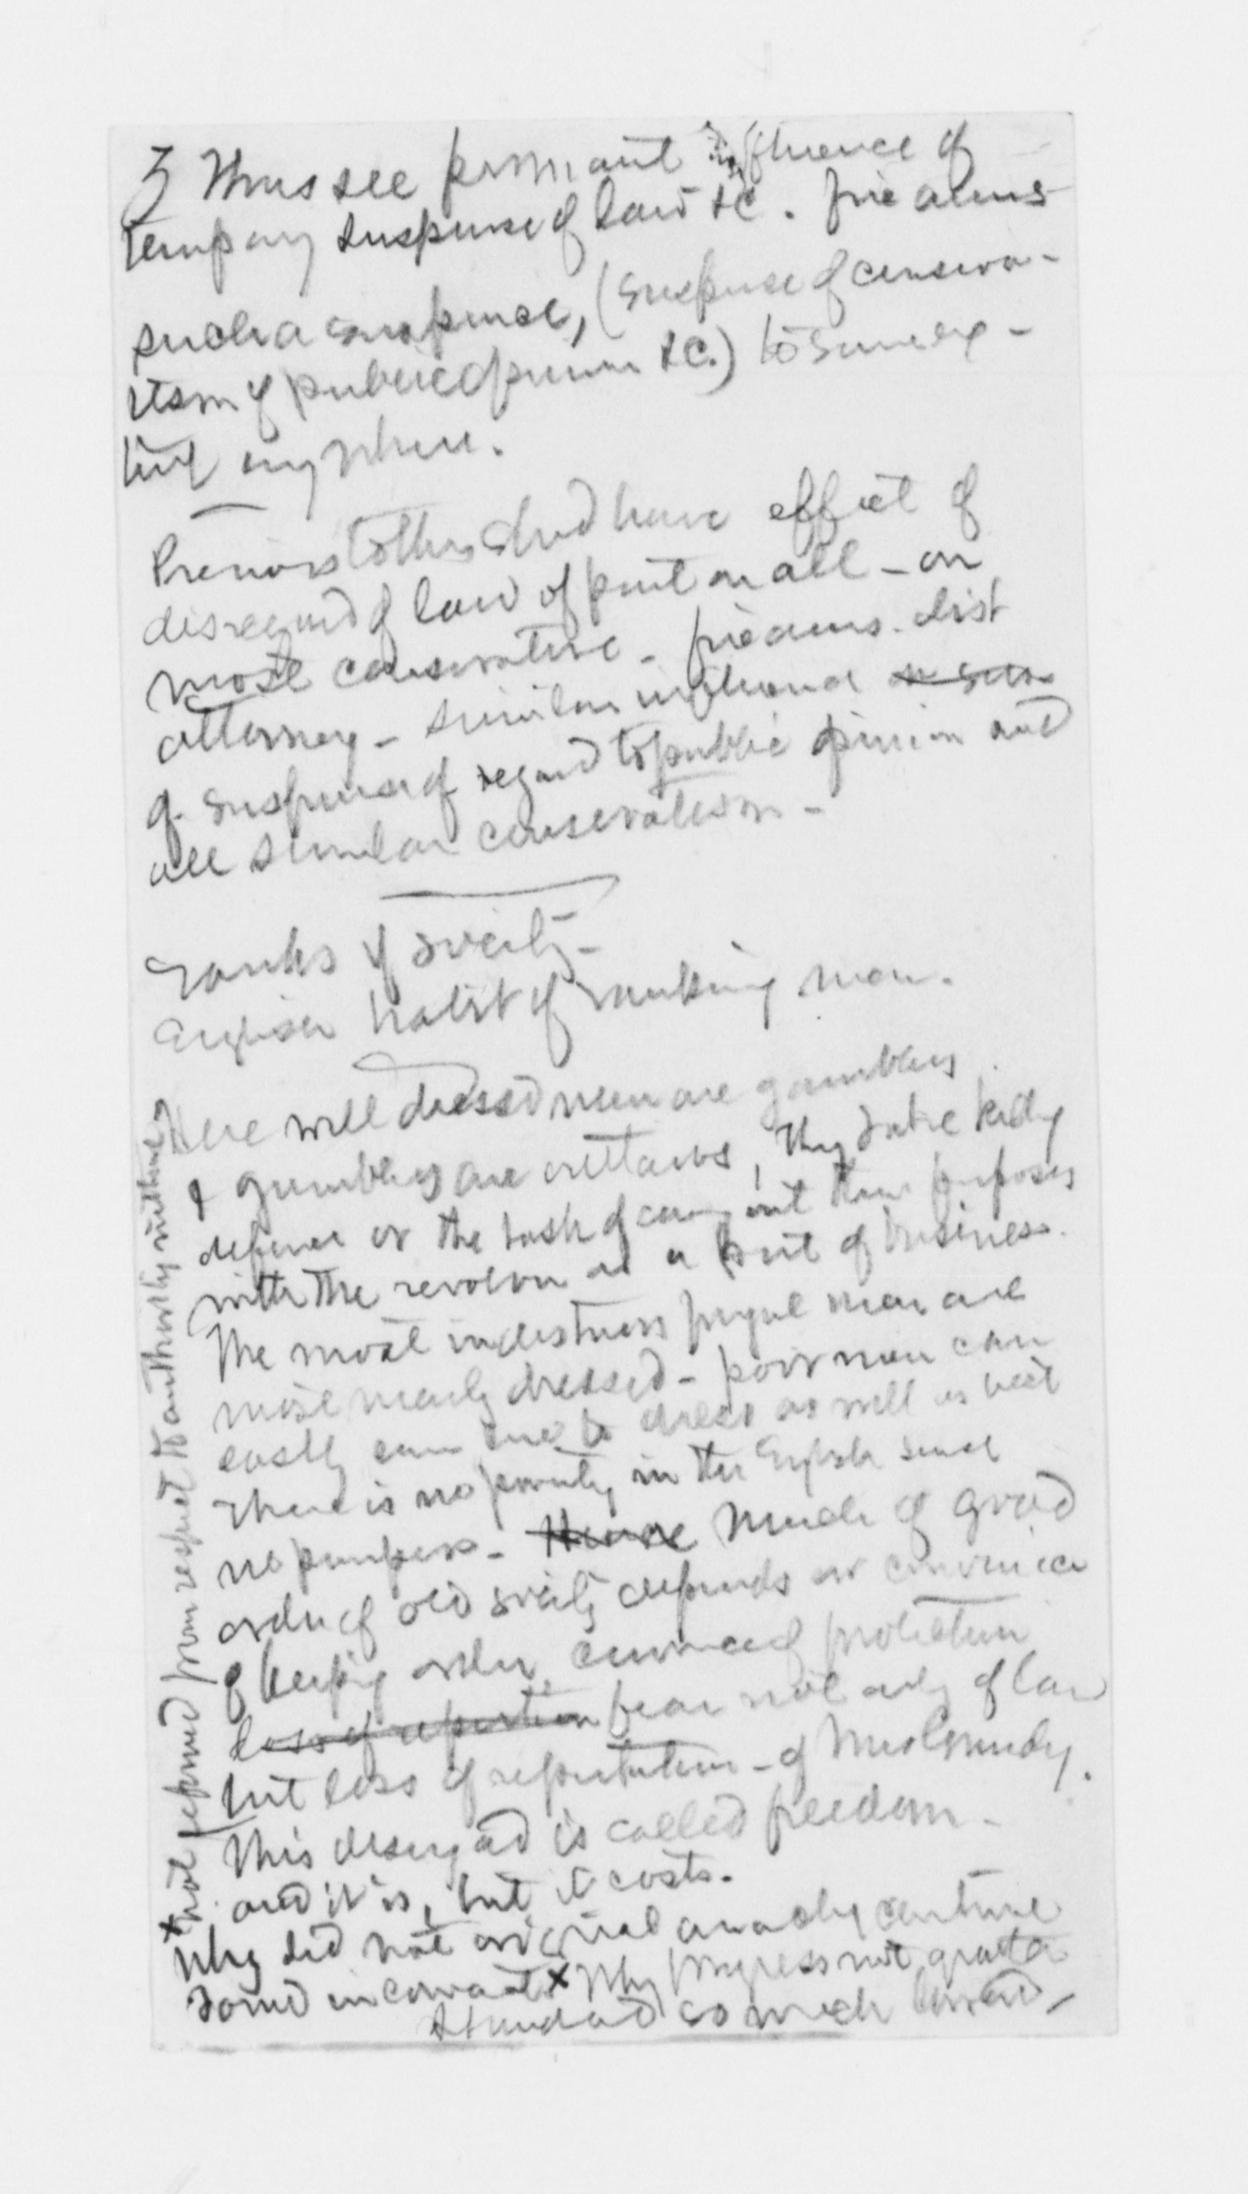 3 Thus see permant influence of
tempory suspense of law &c. fire arms
such a suspense, (suspense of conserva-
tism of public opinion &c.) to some ex-
tent any where.
Previous to this should have effect of
disregard of law of part on all - on
most conservative - fire arms. dist
attorney - similar influence
of suspense of regard to public opinion and
all similar conservatism -
ranks of society -
English habit of ranking men.
Here well dressed men are gamblers
& gamblers are outlaws, they take
defence or the task of out their purposes
with the revolver as a part of business.
The most industrious frugal men are
most meanly dressed - poor men can
easily earn to dress as well as best
There is no poverty in the English sense
no paupers - Hence Much of good
order of old society depends on convenience
of keeping order of protection
loss of fear not only of law
but loss of reputation - of
This disregard is called freedom -
and it is, but it costs.
Why did not original anarchy continue
some x Why progress not greater
standard so much
x not reformed from respect to authority